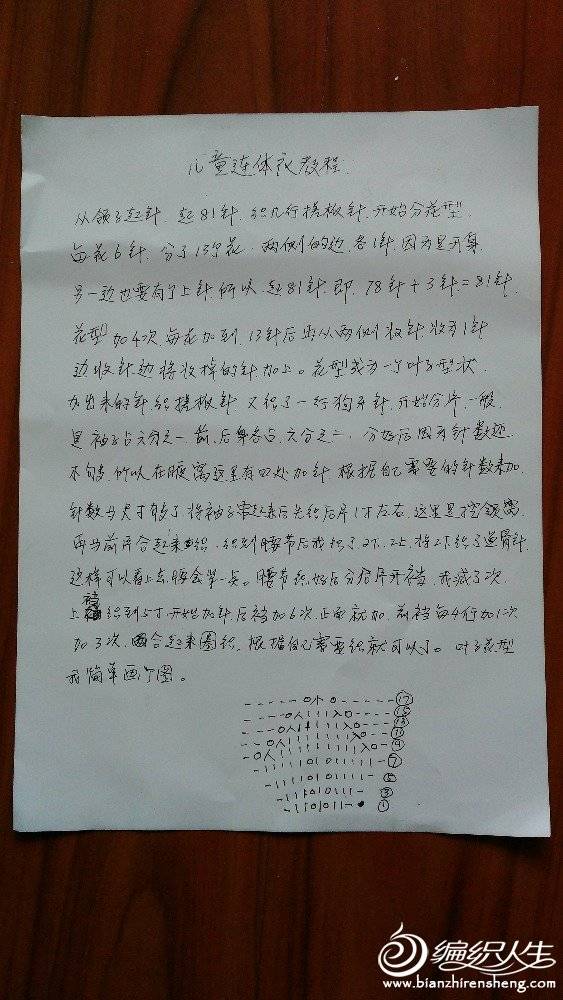 儿童连体衣教程.
从领子起针.起81针.织几行搓板针.开始分花型.
每花6针.分了13个花.两侧的边.各1针.因为是开身.
另一边也要有个上针.所以.起81针.即.78针+3针=81针.
花型加4次.每花加到.13针后.再从两侧收针.收至1针
边收针.边将收掉的针加上。花型成为一个叶子型状.
加出来的针.织搓板针.又织了一行狗牙针.开始分片.一般
是袖子占六分之一.前.后身各占.六分之二.分好后因为针数还
不够.所以在腋窝这里有四处加针.根据自己需要的针数来加.
针数与尺寸够了.将袖子串起来后先织后片1寸左右.这里是挖领窝
再与前片合起来织.织到腰节后我织了.2下.2上.将2下织了逆骨针.
这样可以看上去.腰会紧一点。腰节织好后分后片开裆.我减了次.
上裆织到5寸开始加针.后裆加6次.正面就加.前裆每4行加1次
加了3次.合起来圈织.根据自己需要织就可以了。叶子花型
我简单画个图。
-----o小o-----⑰
----o人|||入o----
---o人|||||入o---
--o人|||||||入o--
-o人|||||||||入o-
-||||||o|o||||||-⑦
-|||||o|o|||||-⑤
-||||o|o||||-③
-|||o|o|||-①
编织人生
www.bianzhirensheng.com